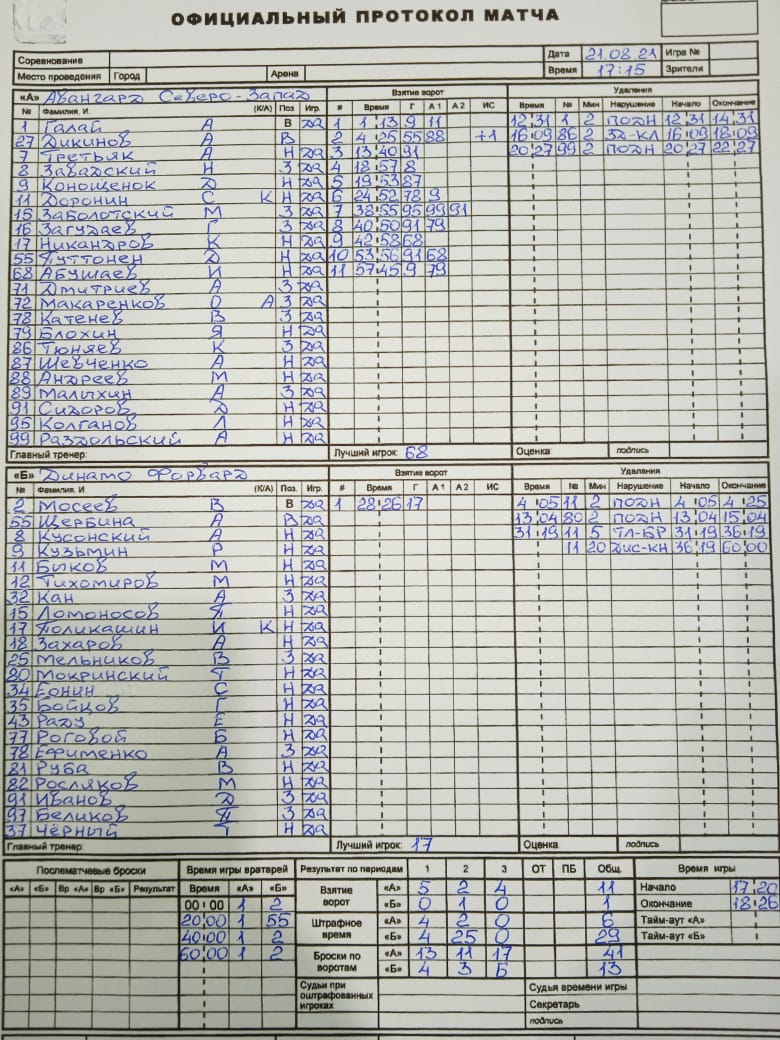 ОФИЦИАЛЬНЫЙ ПРОТОКОЛ МАТЧА
Соревнование Дата 21.08.21 Игра №
Место проведения Город Арена Время 17:15 Зрители
«А» Авангард Северо-Запад Взятие ворот Удаления
№ Фамилия, И. (К/А) Поз Игр. # Время Г А1 А2 ИС Время № Мин Нарушение Начало Окончание
1 Галай А В да 1 1 13 9 11 12 31 1 2 ПОДН 12 31 14 31
27 Дикинов А В 2 4 25 55 88 +1 16 09 86 2 ЗД-КЛ 16 09 18 09
7 Третьяк А Н да 3 13 40 91 20 27 99 2 ПОДН 20 27 22 27
8 Завадский Н З да 4 18 57 8
9 Конощенок Д Н да 5 19 53 87
11 Доронин С К Н да 6 24 52 78 9
15 Заболотский М З да 7 38 55 95 99 91
16 Загудаев Г З да 8 40 50 91 79
17 Никандров К Н да 9 42 58 68
55 Путтонен Д Н да 10 53 56 91 68
68 Абушаев И Н да 11 57 45 9 79
71 Дмитриев А З да
72 Макаренков О А З да
78 Катенев В З да
79 Блохин Я Н да
86 Тюняев К З да
87 Шевченко А Н да
88 Андреев М Н да
89 Малыхин А З да
91 Сидоров Д Н да
95 Колганов Л Н да
99 Раздольский А Н да
Главный тренер: Лучший игрок: 68 Оценка подпись
«Б» Динамо Форвард Взятие ворот Удаления
№ Фамилия, И. (К/А) Поз. Игр. # Время Г А1 А2 ИС Время № Мин Нарушение Начало Окончание
2 Мосеев В В да 1 28 26 17 4 05 11 2 ПОДН 4 05 4 25
55 Щербина А В да 13 04 80 2 ПОДН 13 04 15 04
8 Кусонский А Н да 31 19 11 5 ТЛ-БР 31 19 36 19
9 Кузьмин Р Н да 11 20 ДИС-КН 36 19 60 00
11 Быков М Н да
12 Тихомиров М Н да
32 Кан А З да
15 Ломоносов П Н да
17 Поликашин И К Н да
18 Захаров А Н да
25 Мельников В З да
80 Мокринский Т Н да
34 Еонин С Н да
35 Бойцов Г Н да
43 Раду Е Н да
77 Роговой Б Н да
78 Ефименко А З да
81 Руба В Н да
82 Росляков М Н да
91 Иванов Д З да
97 Беликов П З да
37 Чёрный Т Н да
Главный тренер: Лучший игрок: 17 Оценка подпись
Послематчевые броски Время игры вратарей Результат по периодам 1 2 3 ОТ ПБ Общ. Время игры
«А» «Б» Вр «А» Вр «Б» Результат Время «А» «Б» Взятие ворот «А» 5 2 4 11 Начало 17 20
00 00 1 2 «Б» 0 1 0 1 Окончание 18 26
20 00 1 55 Штрафное время «А» 4 2 0 6 Тайм-аут «А»
40 00 1 2 «Б» 4 25 0 29 Тайм-аут «Б»
60 00 1 2 Броски по воротам «А» 13 11 17 41
«Б» 4 3 6 13
Судьи при оштрафованных игроках Судья времени игры
Секретарь
подпись